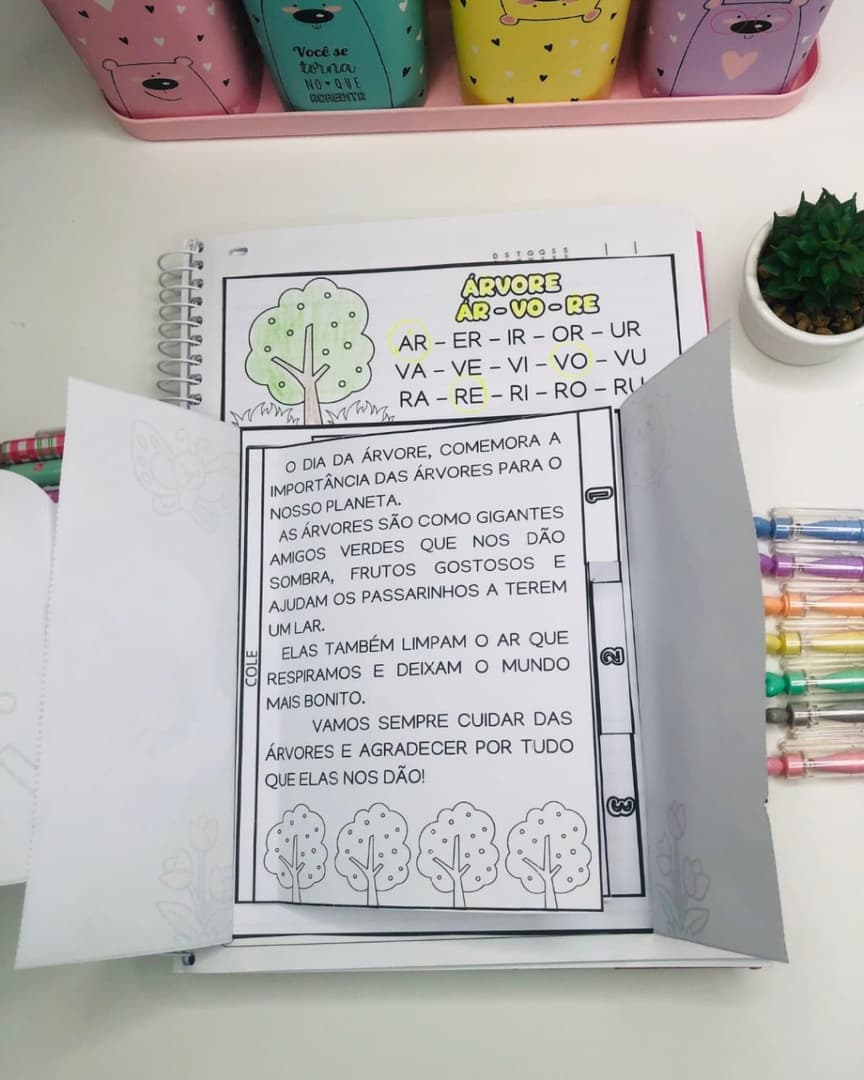 Você se
torna
NO QUE
ACREDITA
ÁRVORE
ÁR - VO - RE
ÁR - ER - IR - OR - UR
VA - VE - VI - VO - VU
RA - RE - RI - RO - RU
O DIA DA ÁRVORE, COMEMORA A
IMPORTÂNCIA DAS ÁRVORES PARA O
NOSSO PLANETA.
AS ÁRVORES SÃO COMO GIGANTES
AMIGOS VERDES QUE NOS DÃO
SOMBRA, FRUTOS GOSTOSOS E
AJUDAM OS PASSARINHOS A TEREM
UM LAR.
ELAS TAMBÉM LIMPAM O AR QUE
RESPIRAMOS E DEIXAM O MUNDO
MAIS BONITO.
VAMOS SEMPRE CUIDAR DAS
ÁRVORES E AGRADECER POR TUDO
QUE ELAS NOS DÃO!
COLE
1
2
3
D S T Q Q S S